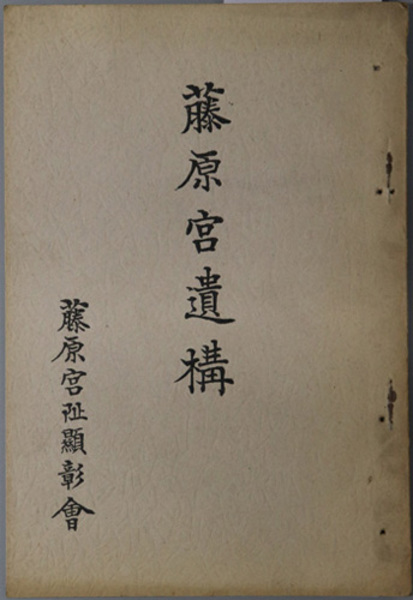 藤原宮遺構
藤原宮阯顯彰會